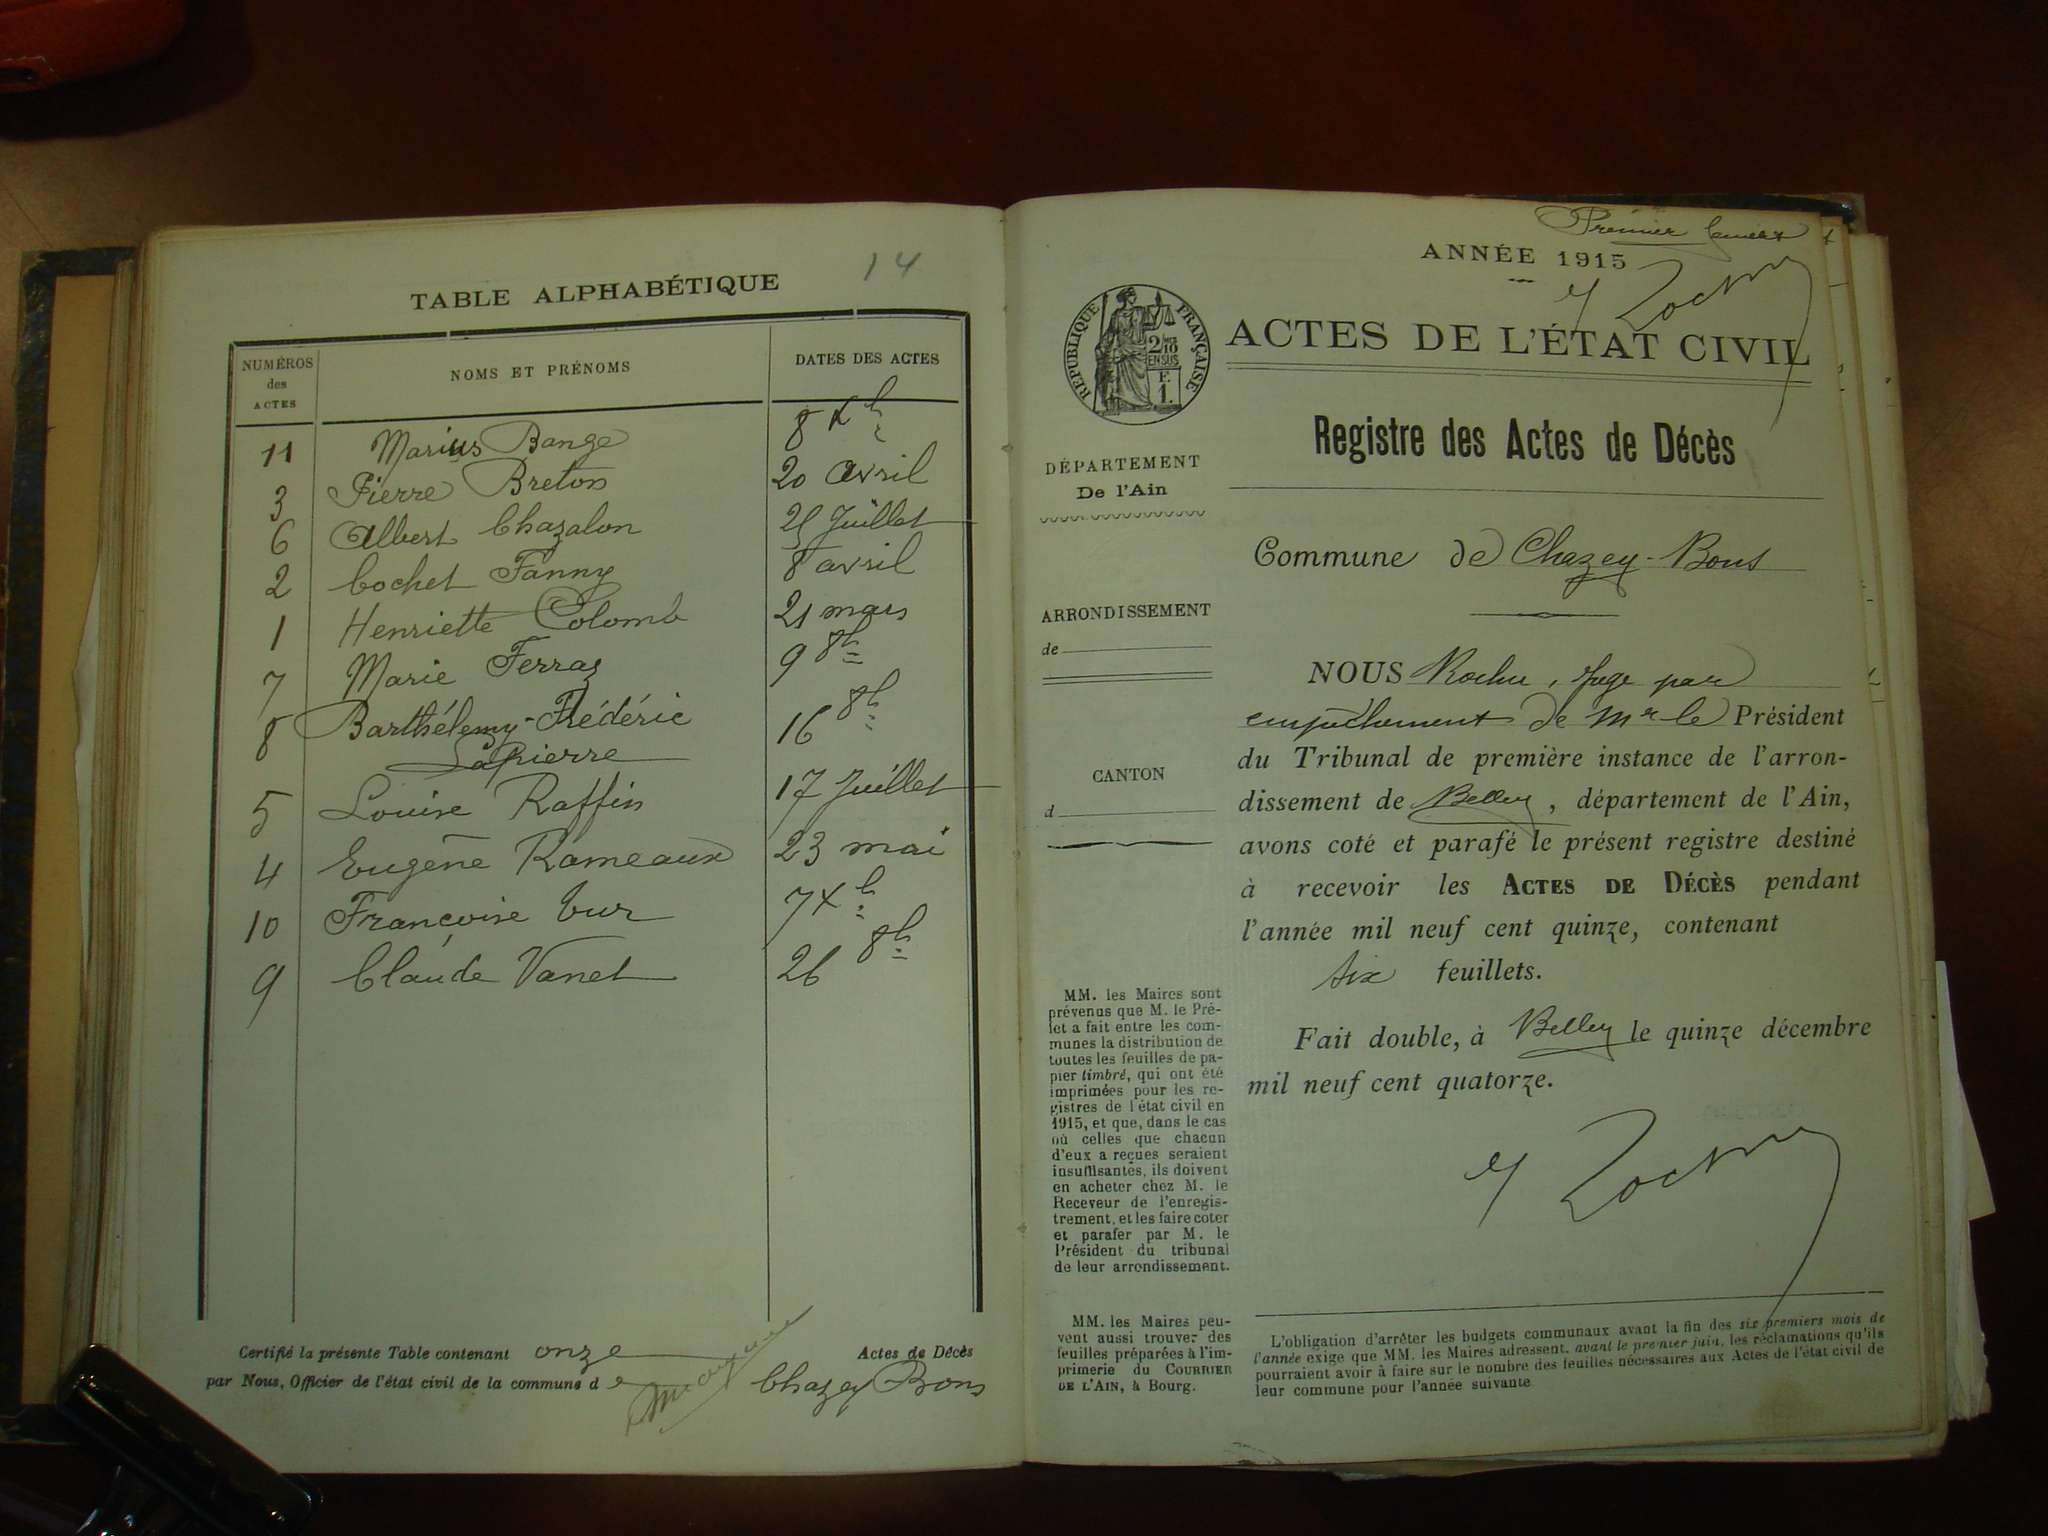 14
TABLE ALPHABÉTIQUE
NUMÉROS
des
ACTES
NOMS ET PRÉNOMS
DATES DES ACTES
11 Marius Bange 8 Xbre
3 Pierre Breton 20 avril
6 Albert Chazalon 25 Juillet
2 Cochet Fanny 8 avril
1 Henriette Colomb 21 mars
7 Marie Ferraz 9 8bre
8 Barthélemy-Frédéric 16 8bre
Lapierre
5 Louise Raffin 17 Juillet
4 Eugène Rameaux 23 mai
10 Françoise Tur 7 Xbre
9 Claude Vanet 26 8bre
Certifié la présente Table contenant onze Actes de Décès
par Nous, Officier de l'état civil de la commune de Chazey Bons
Premier
ANNÉE 1915
RÉPUBLIQUE FRANÇAISE
2/10
EN SUS
F.
1.
ACTES DE L'ÉTAT CIVIL
Registre des Actes de Décès
DÉPARTEMENT
De l'Ain
Commune de Chazey-Bons
ARRONDISSEMENT
de
CANTON
d
NOUS Rochu, Juge par
empêchement de Mr le Président
du Tribunal de première instance de l'arron-
dissement de Belley, département de l'Ain,
avons coté et parafé le présent registre destiné
à recevoir les ACTES DE DÉCÈS pendant
l'année mil neuf cent quinze, contenant
six feuillets.
Fait double, à Belley le quinze décembre
mil neuf cent quatorze.
MM. les Maires sont
prévenus que M. le Pré-
fet a fait entre les com-
munes la distribution de
toutes les feuilles de pa-
pier timbré, qui ont été
imprimées pour les re-
gistres de l'état civil en
1915, et que, dans le cas
où celles que chacun
d'eux a reçues seraient
insuffisantes, ils doivent
en acheter chez M. le
Receveur de l'enregis-
trement, et les faire coter
et parafer par M. le
Président du tribunal
de leur arrondissement.
MM. les Maires peu-
vent aussi trouver des
feuilles préparées à l'im-
primerie du COURRIER
DE L'AIN, à Bourg.
L'obligation d'arrêter les budgets communaux avant la fin des six premiers mois de
l'année exige que MM. les Maires adressent, avant le premier juin, les réclamations qu'ils
pourraient avoir à faire sur le nombre des feuilles nécessaires aux Actes de l'état civil de
leur commune pour l'année suivante